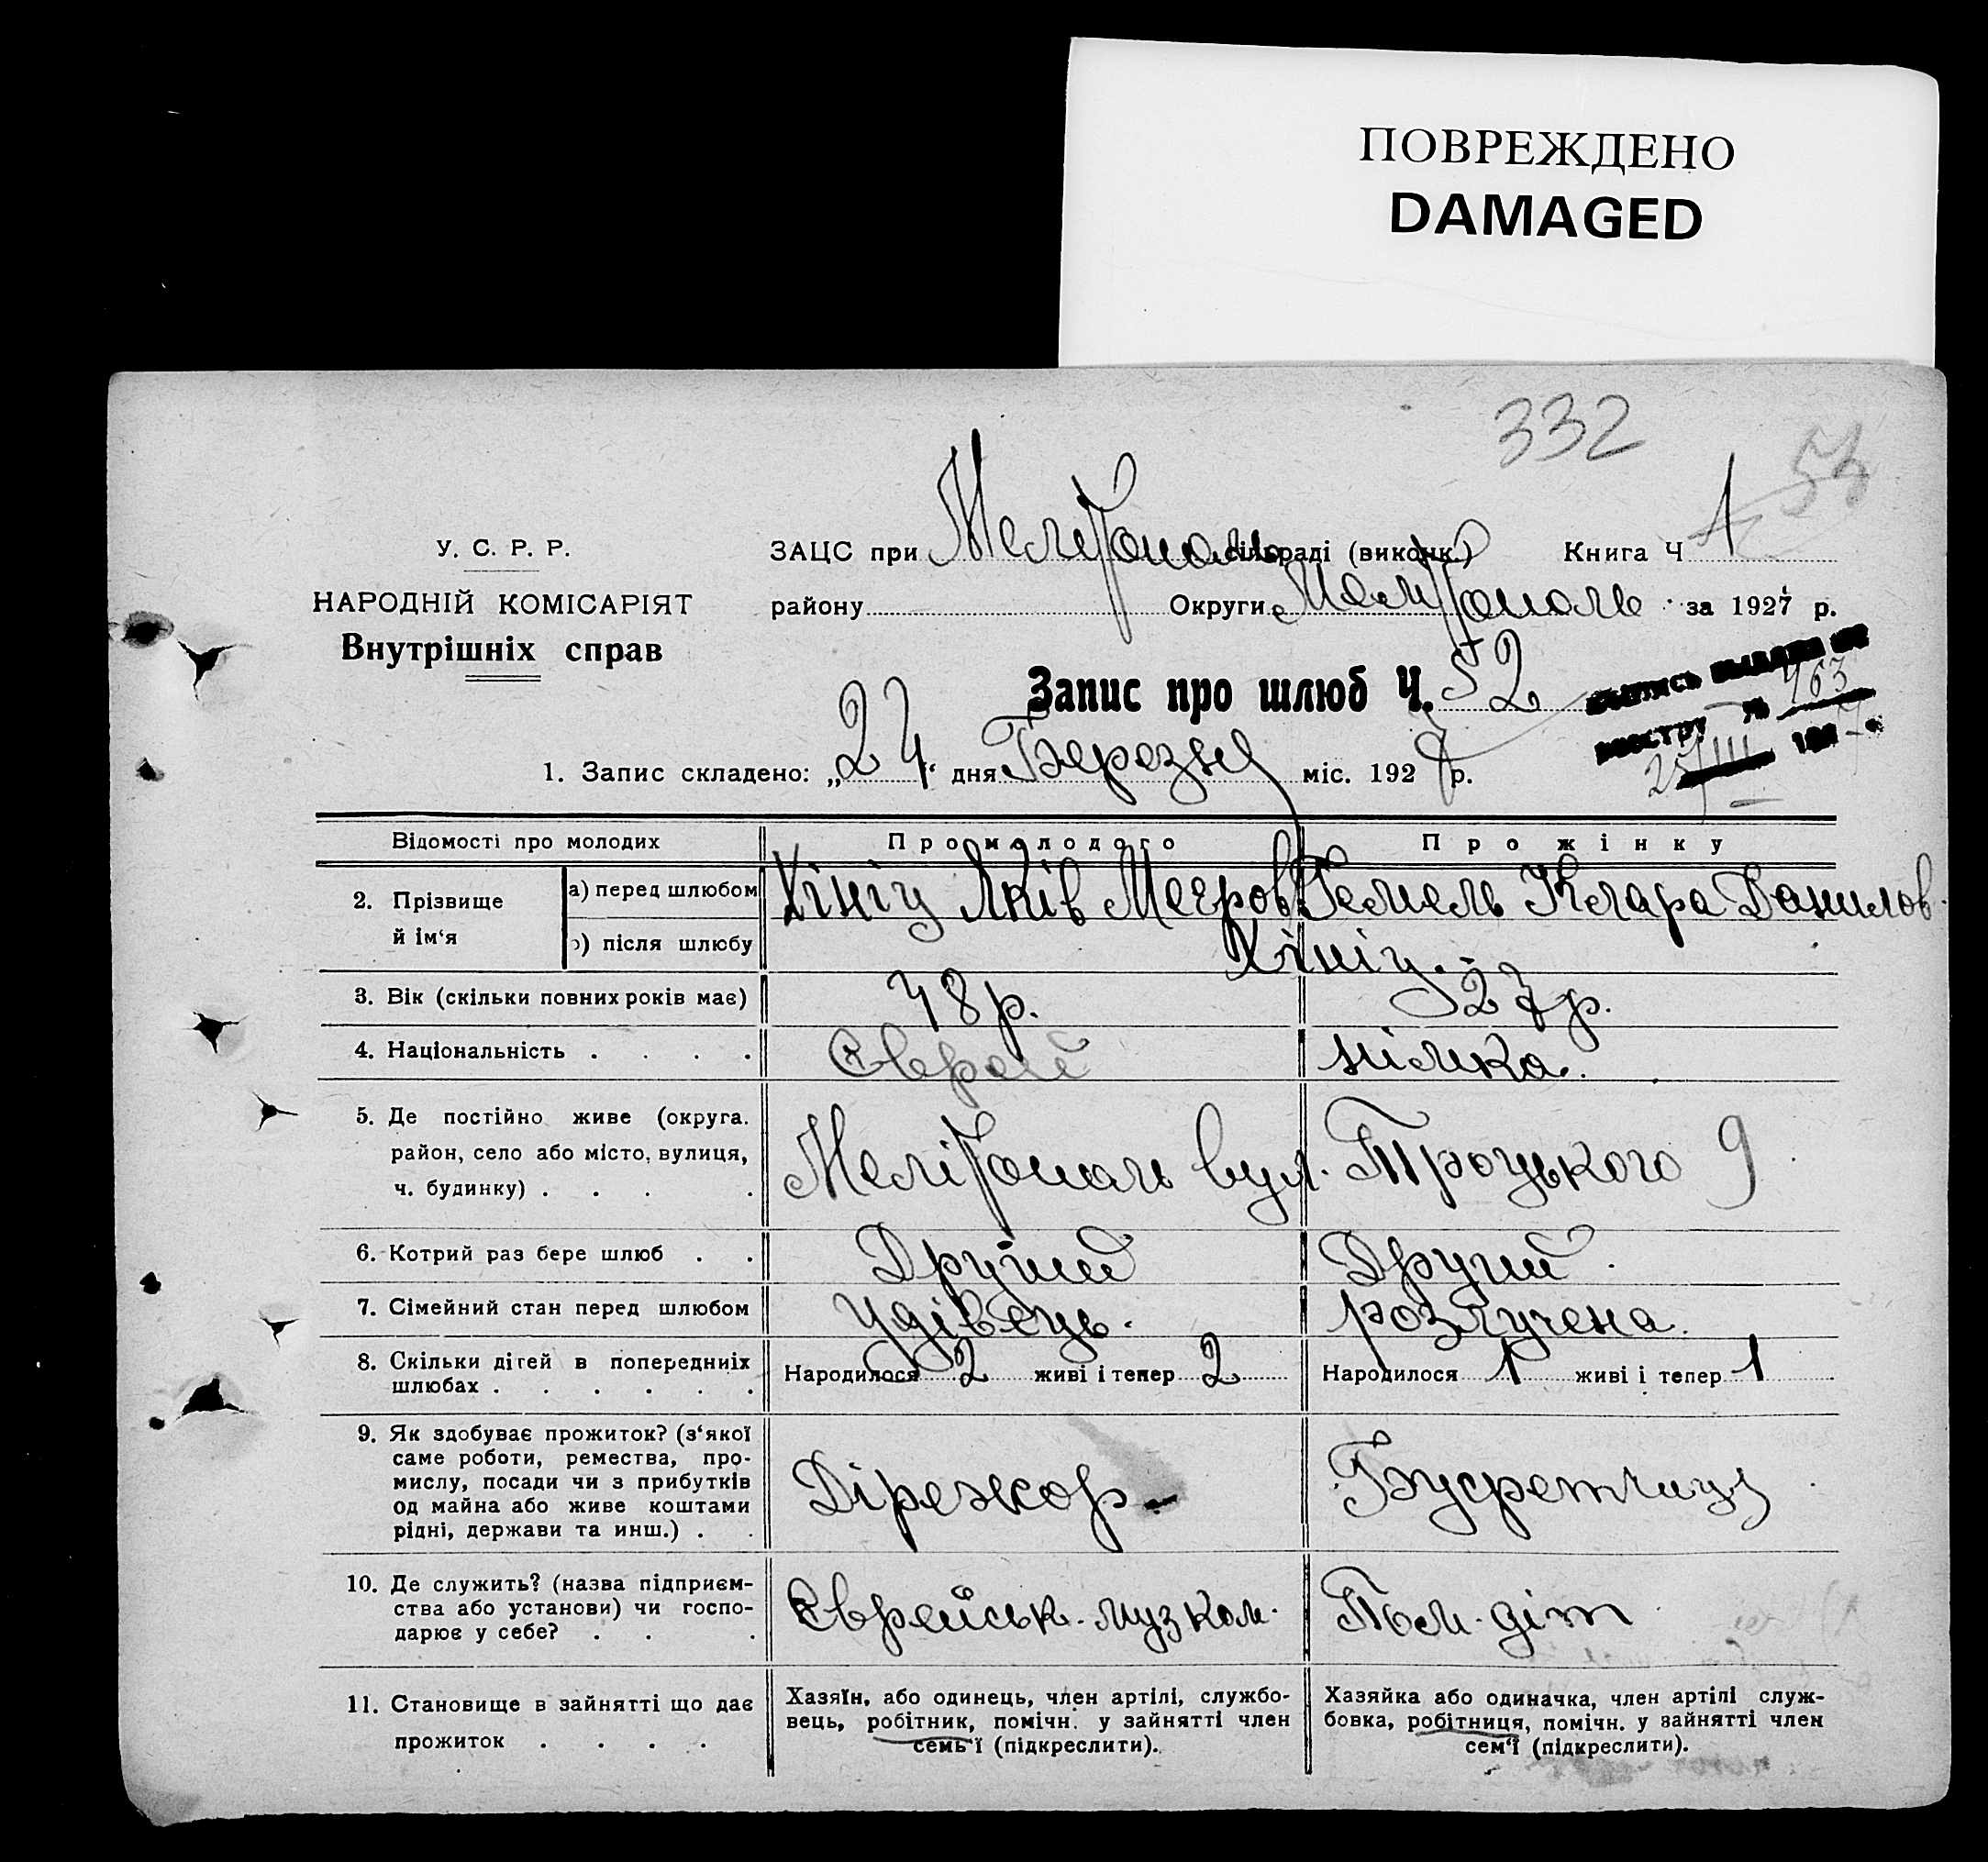 ПОВРЕЖДЕНО
DAMAGED
332
54
У. С. Р. Р.
НАРОДНІЙ КОМІСАРІЯТ
Внутрішніх справ
ЗАЦС при Мелітополь сільраді (виконк.) Книга Ч 1
району Округи Мелітополь за 1927 р.
Запис про шлюб Ч. 52
выпись выдана по
реестру № 463
25/III 192
1. Запис складено: „24“ дня Березня міс. 1927 р.
Відомості про молодих Про молодого Про жінку
2. Прізвище й ім‘я а) перед шлюбом Хініц Яків Меєров Гемель Клара Данилов.
б) після шлюбу Хініц.
3. Вік (скільки повних років має) 48 р. 27 р.
4. Національність . . . . Єврей німка.
5. Де постійно живе (округа.
район, село або місто, вулиця,
ч. будинку) . . . . Мелітополь вул. Троцького 9
6. Котрий раз бере шлюб . . Другий Другий.
7. Сімейний стан перед шлюбом удівець. розлучена.
8. Скільки дітей в попередниіх
шлюбах . . . . . . Народилося 2 живі і тепер 2 Народилося 1 живі і тепер 1
9. Як здобуває прожиток? (з‘якої
саме роботи, ремества, про-
мислу, посади чи з прибутків
од майна або живе коштами
рідні, держави та инш.) . . Діріжор Буфетчиця
10. Де служить? (назва підприєм-
ства або установи) чи госпо-
дарює у себе? . . . Єврейськ. музком. Пом. діт
11. Становище в зайнятті що дає
прожиток . . . .
Хазяїн, або одинець, член артілі, службо-
вець, робітник, помічн. у зайнятті член
семь‘ї (підкреслити).
Хазяйка або одиначка, член артілі служ-
бовка, робітниця, помічн. у зайнятті член
сем‘ї (підкреслити).